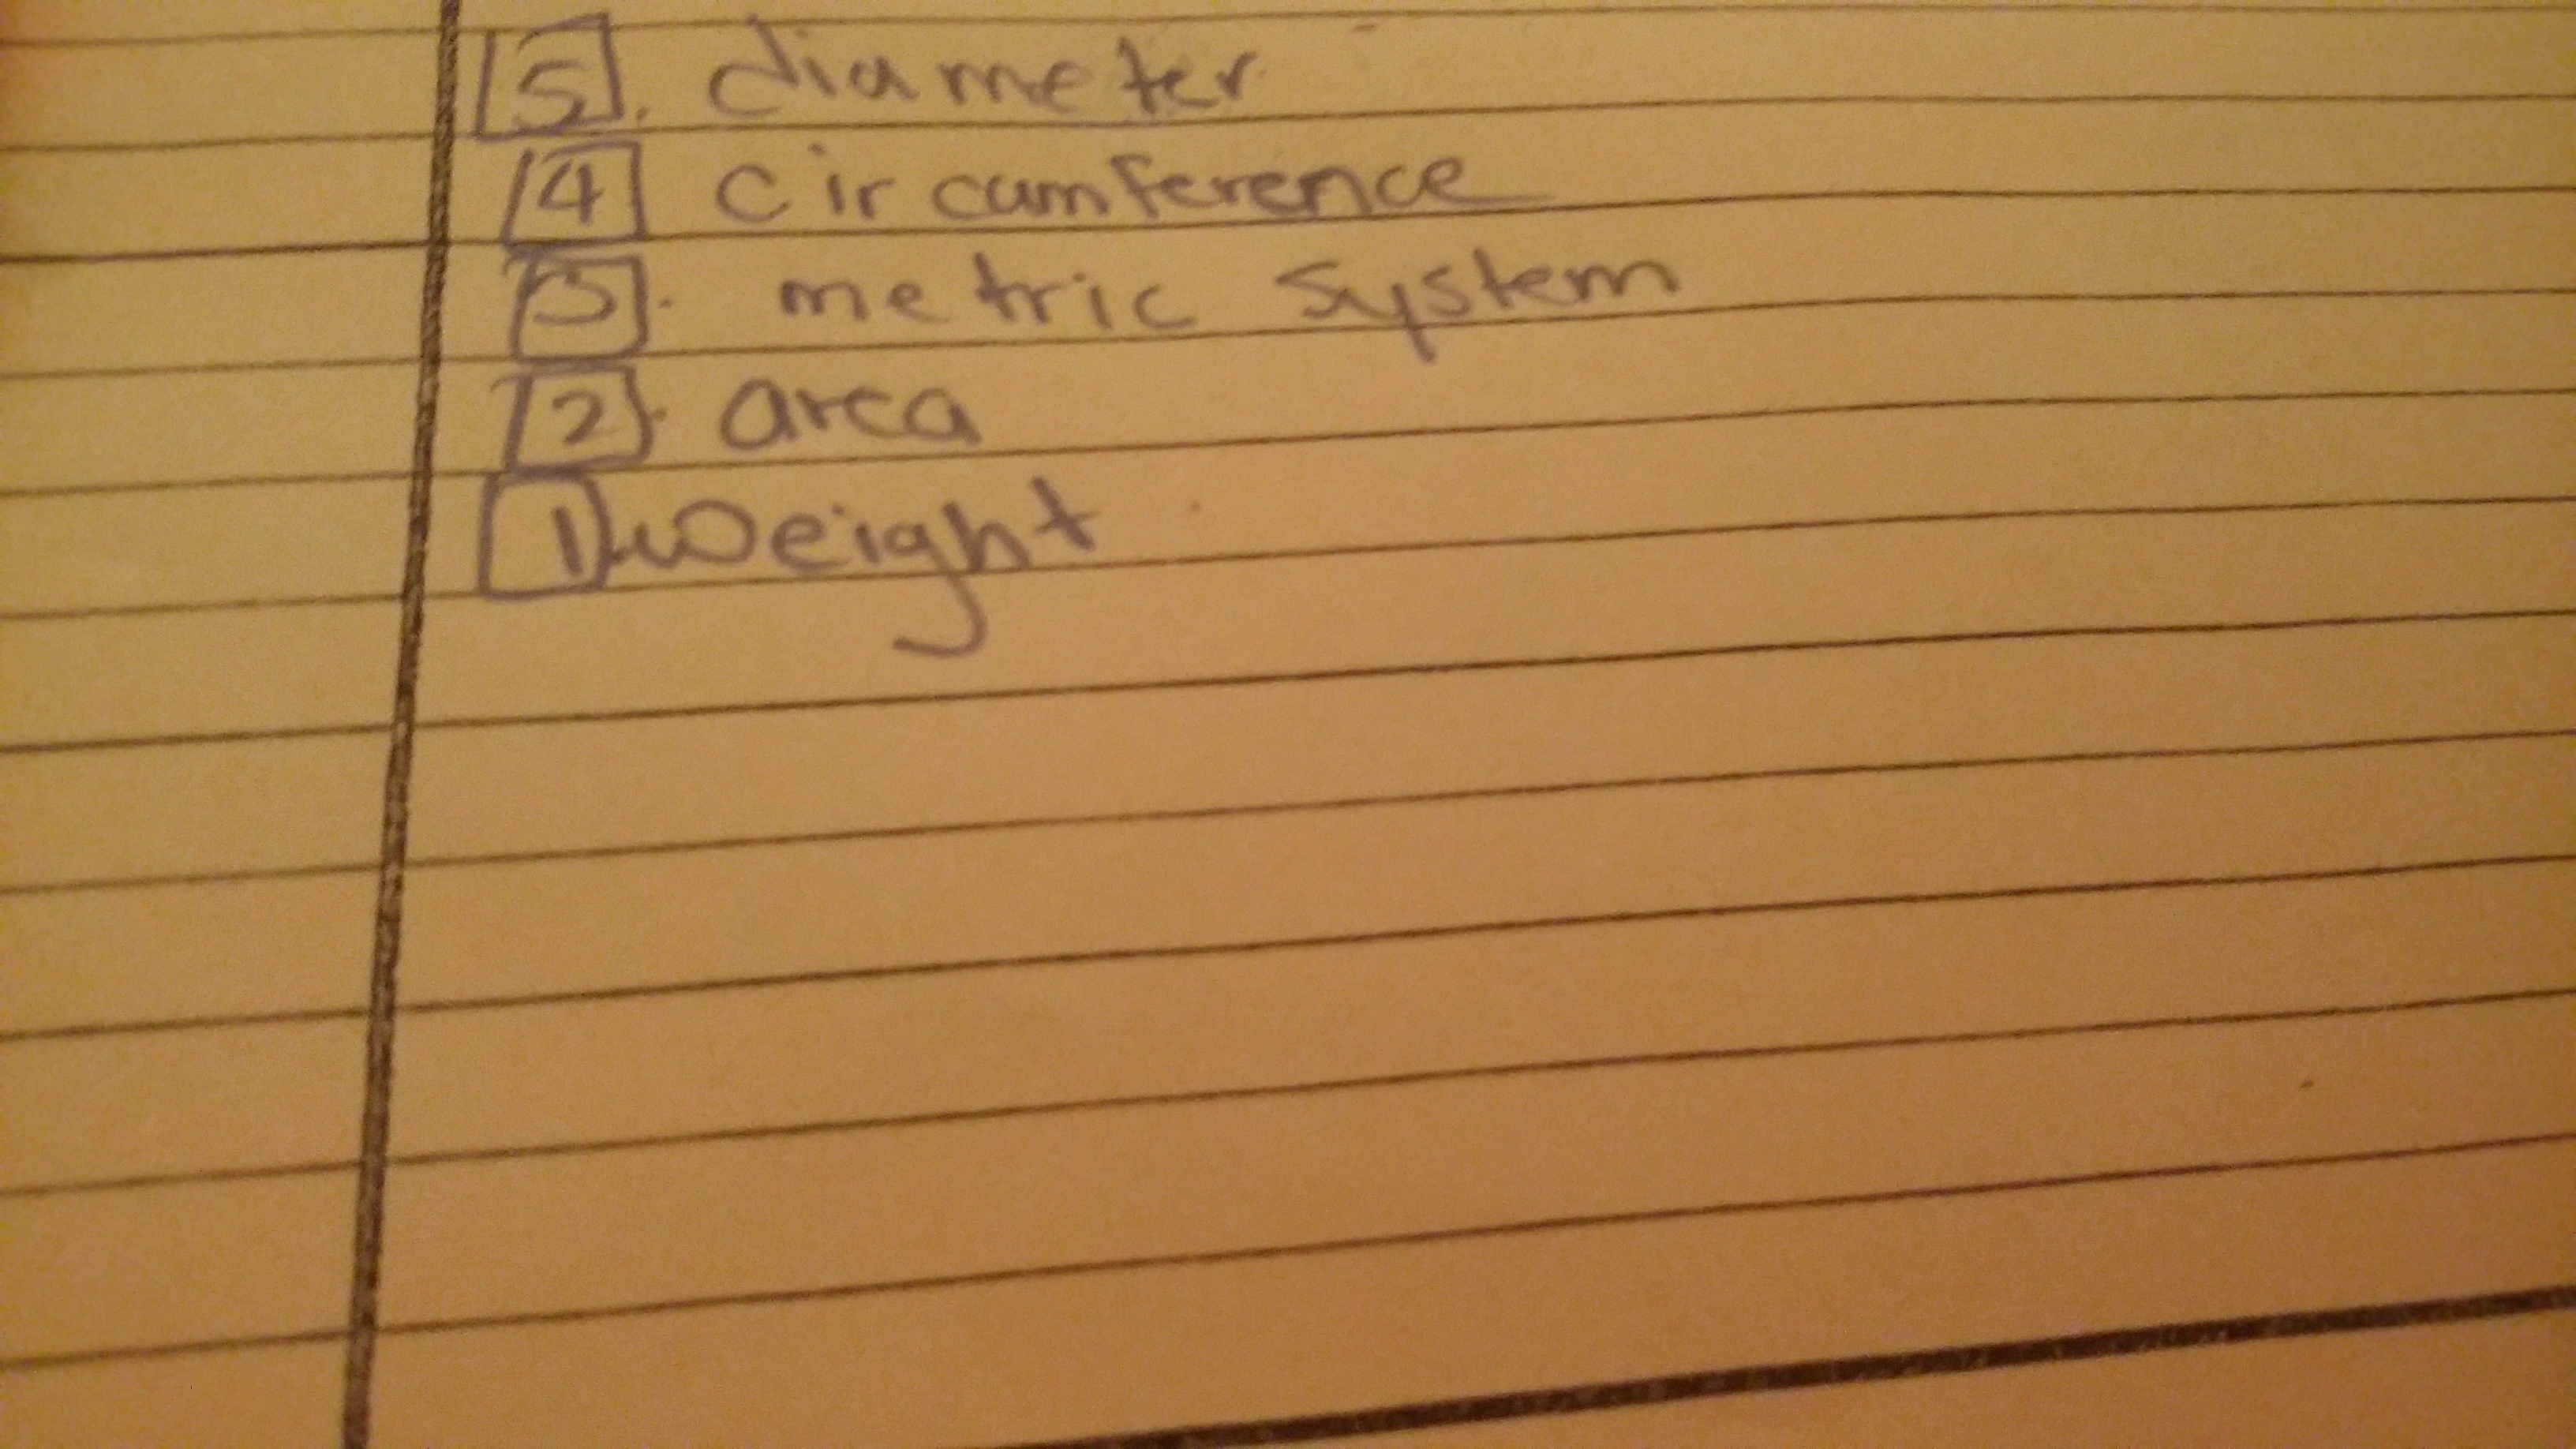 5. diameter
4 circumference
3. metric system
2. area
1. weight